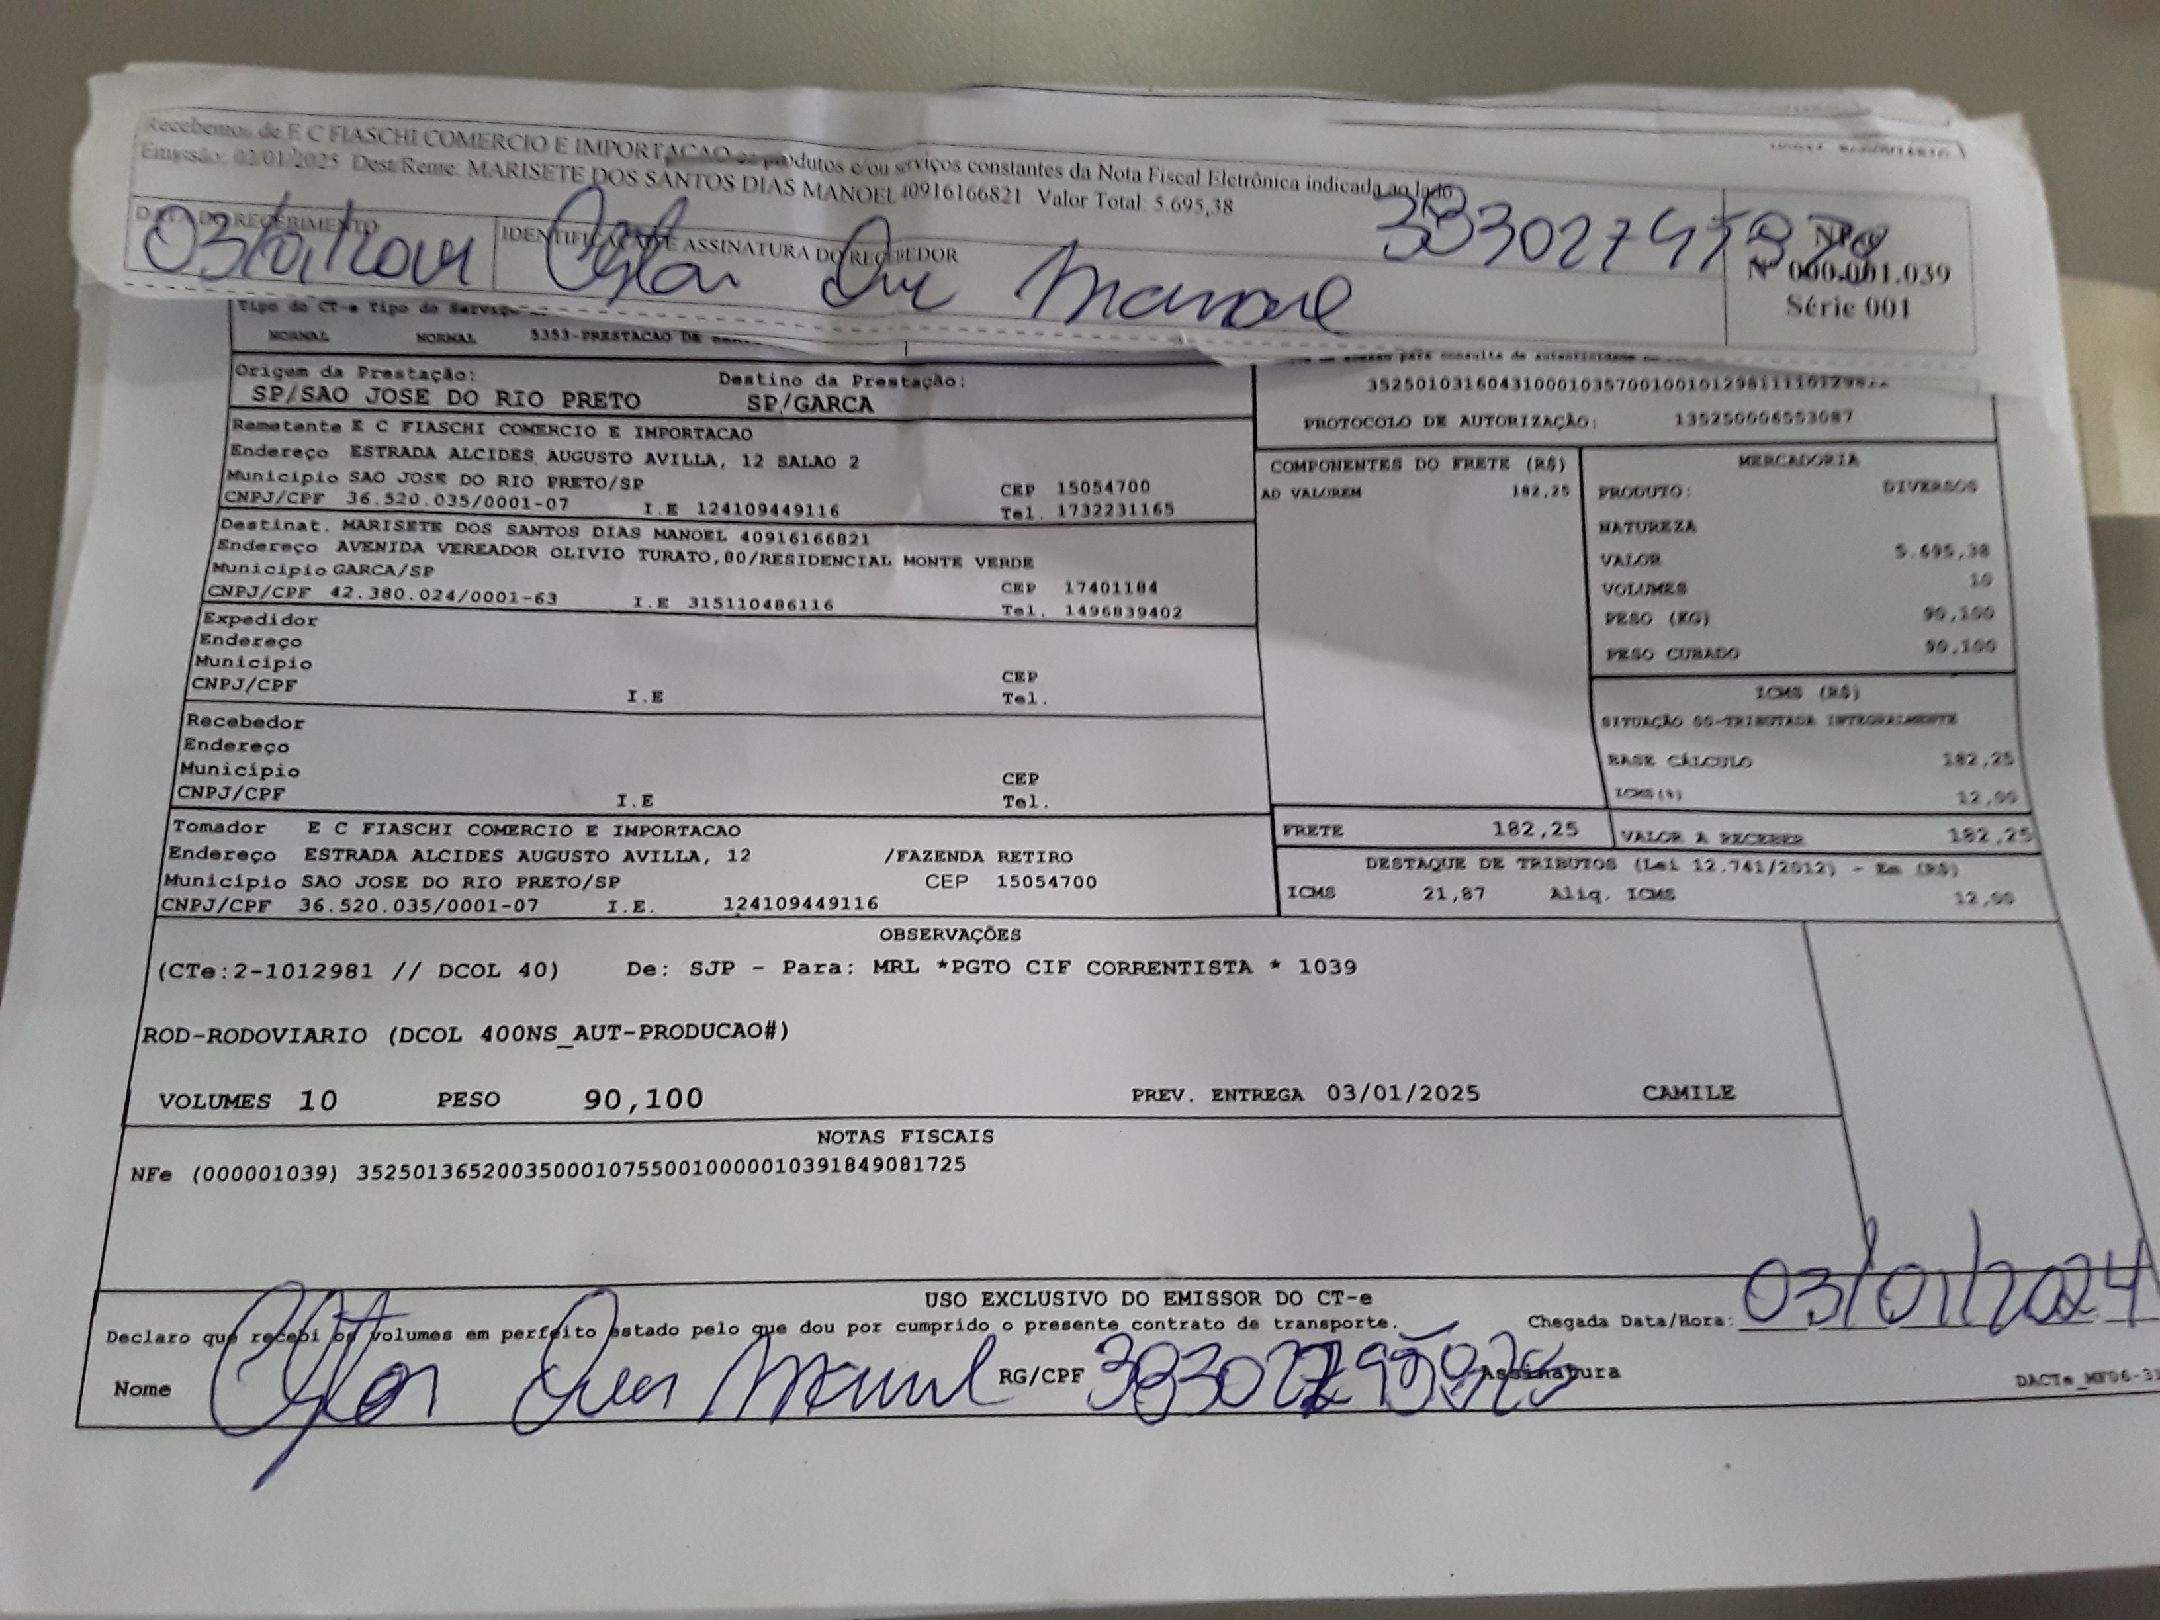 Recebemos de E C FIASCHI COMERCIO E IMPORTACAO os produtos e/ou serviços constantes da Nota Fiscal Eletrônica indicada ao lado
Emissão: 02/01/2025 Dest/Reme: MARISETE DOS SANTOS DIAS MANOEL 40916166821 Valor Total: 5.695,38
DATA DO RECEBIMENTO
IDENTIFICAÇÃO E ASSINATURA DO RECEBEDOR
NF-e
Nº 000.001.039
Série 001
03/01/
Tipo do CT-e Tipo do Serviço
NORMAL NORMAL 5353-PRESTACAO DE
Origem da Prestação: Destino da Prestação:
SP/SAO JOSE DO RIO PRETO SP/GARCA
PROTOCOLO DE AUTORIZAÇÃO: 135250006553087
Remetente E C FIASCHI COMERCIO E IMPORTACAO
Endereço ESTRADA ALCIDES AUGUSTO AVILLA, 12 SALAO 2
Municipio SAO JOSE DO RIO PRETO/SP CEP 15054700
CNPJ/CPF 36.520.035/0001-07 I.E 124109449116 Tel. 1732231165
Destinat. MARISETE DOS SANTOS DIAS MANOEL 40916166821
Endereço AVENIDA VEREADOR OLIVIO TURATO,80/RESIDENCIAL MONTE VERDE
Municipio GARCA/SP CEP 17401184
CNPJ/CPF 42.380.024/0001-63 I.E 315110486116 Tel. 1496839402
Expedidor
Endereço
Município CEP
CNPJ/CPF I.E Tel.
Recebedor
Endereço
Município CEP
CNPJ/CPF I.E Tel.
Tomador E C FIASCHI COMERCIO E IMPORTACAO
Endereço ESTRADA ALCIDES AUGUSTO AVILLA, 12 /FAZENDA RETIRO
Municipio SAO JOSE DO RIO PRETO/SP CEP 15054700
CNPJ/CPF 36.520.035/0001-07 I.E. 124109449116
COMPONENTES DO FRETE (R$)
AD VALOREM 182,25
MERCADORIA
PRODUTO: DIVERSOS
NATUREZA
VALOR 5.695,38
VOLUMES 10
PESO (KG) 90,100
PESO CUBADO 90,100
ICMS (R$)
SITUAÇÃO 00-TRIBUTADA INTEGRALMENTE
BASE CÁLCULO 182,25
ICMS(%) 12,00
FRETE 182,25 VALOR A RECEBER 182,25
DESTAQUE DE TRIBUTOS (Lei 12.741/2012) - Em (R$)
ICMS 21,87 Aliq. ICMS 12,00
OBSERVAÇÕES
(CTe:2-1012981 // DCOL 40) De: SJP - Para: MRL *PGTO CIF CORRENTISTA * 1039
ROD-RODOVIARIO (DCOL 400NS_AUT-PRODUCAO#)
VOLUMES 10 PESO 90,100 PREV. ENTREGA 03/01/2025 CAMILE
NOTAS FISCAIS
NFe (000001039) 35250136520035000107550010000010391849081725
USO EXCLUSIVO DO EMISSOR DO CT-e
Declaro que recebi os volumes em perfeito estado pelo que dou por cumprido o presente contrato de transporte. Chegada Data/Hora: 03/01/2024
Nome RG/CPF Assinatura